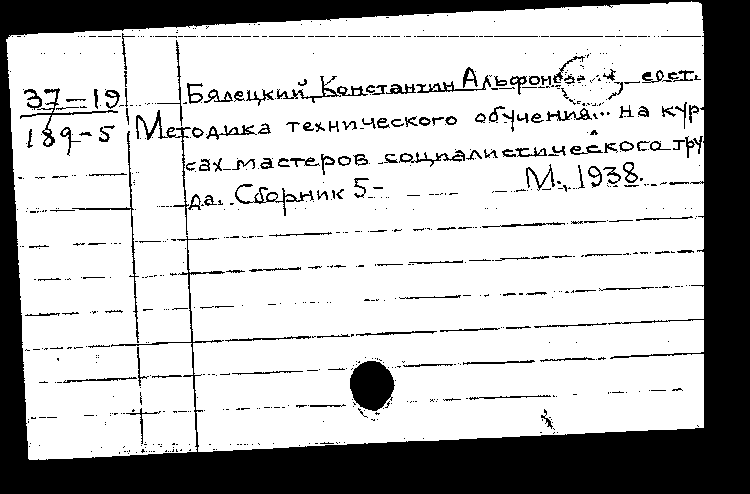 37-19
189-5
Бялецкий, Константин сост.
Методика технического обучения... на кур-
сах мастеров социалистического тру-
да. Сборник 5-
М., 1938.